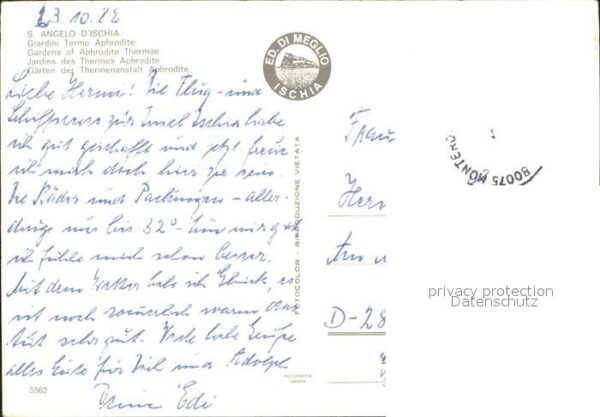 23.10.82
S. ANGELO D'ISCHIA
Giardini Terme Aphrodite
Gardens of Aphrodite Thermae
Jardins des Thermes Aphrodite
Gärten des Thermenanstalt Aphrodite
ED. DI MEGLIO
ISCHIA
Liebe Herma! Die Flug- und
Schiffsreise zur Insel Ischia habe
ich gut geschafft und jetzt freue
ich mich doch hier zu sein.
Die Bäder und Packungen - aller-
dings nur bis 32° - tun mir gut
ich fühle mich schon besser.
Mit dem Wetter habe ich Glück, es
ist noch sommerlich warm, das
tut sehr gut. Viele liebe Grüße
alles Gute für Dich und Adolph
Deine Edi
5562
FOTOCOLOR - RIPRODUZIONE VIETATA
Frau
Her
An
D-28
80075 MONTERO
privacy protection
Datenschutz